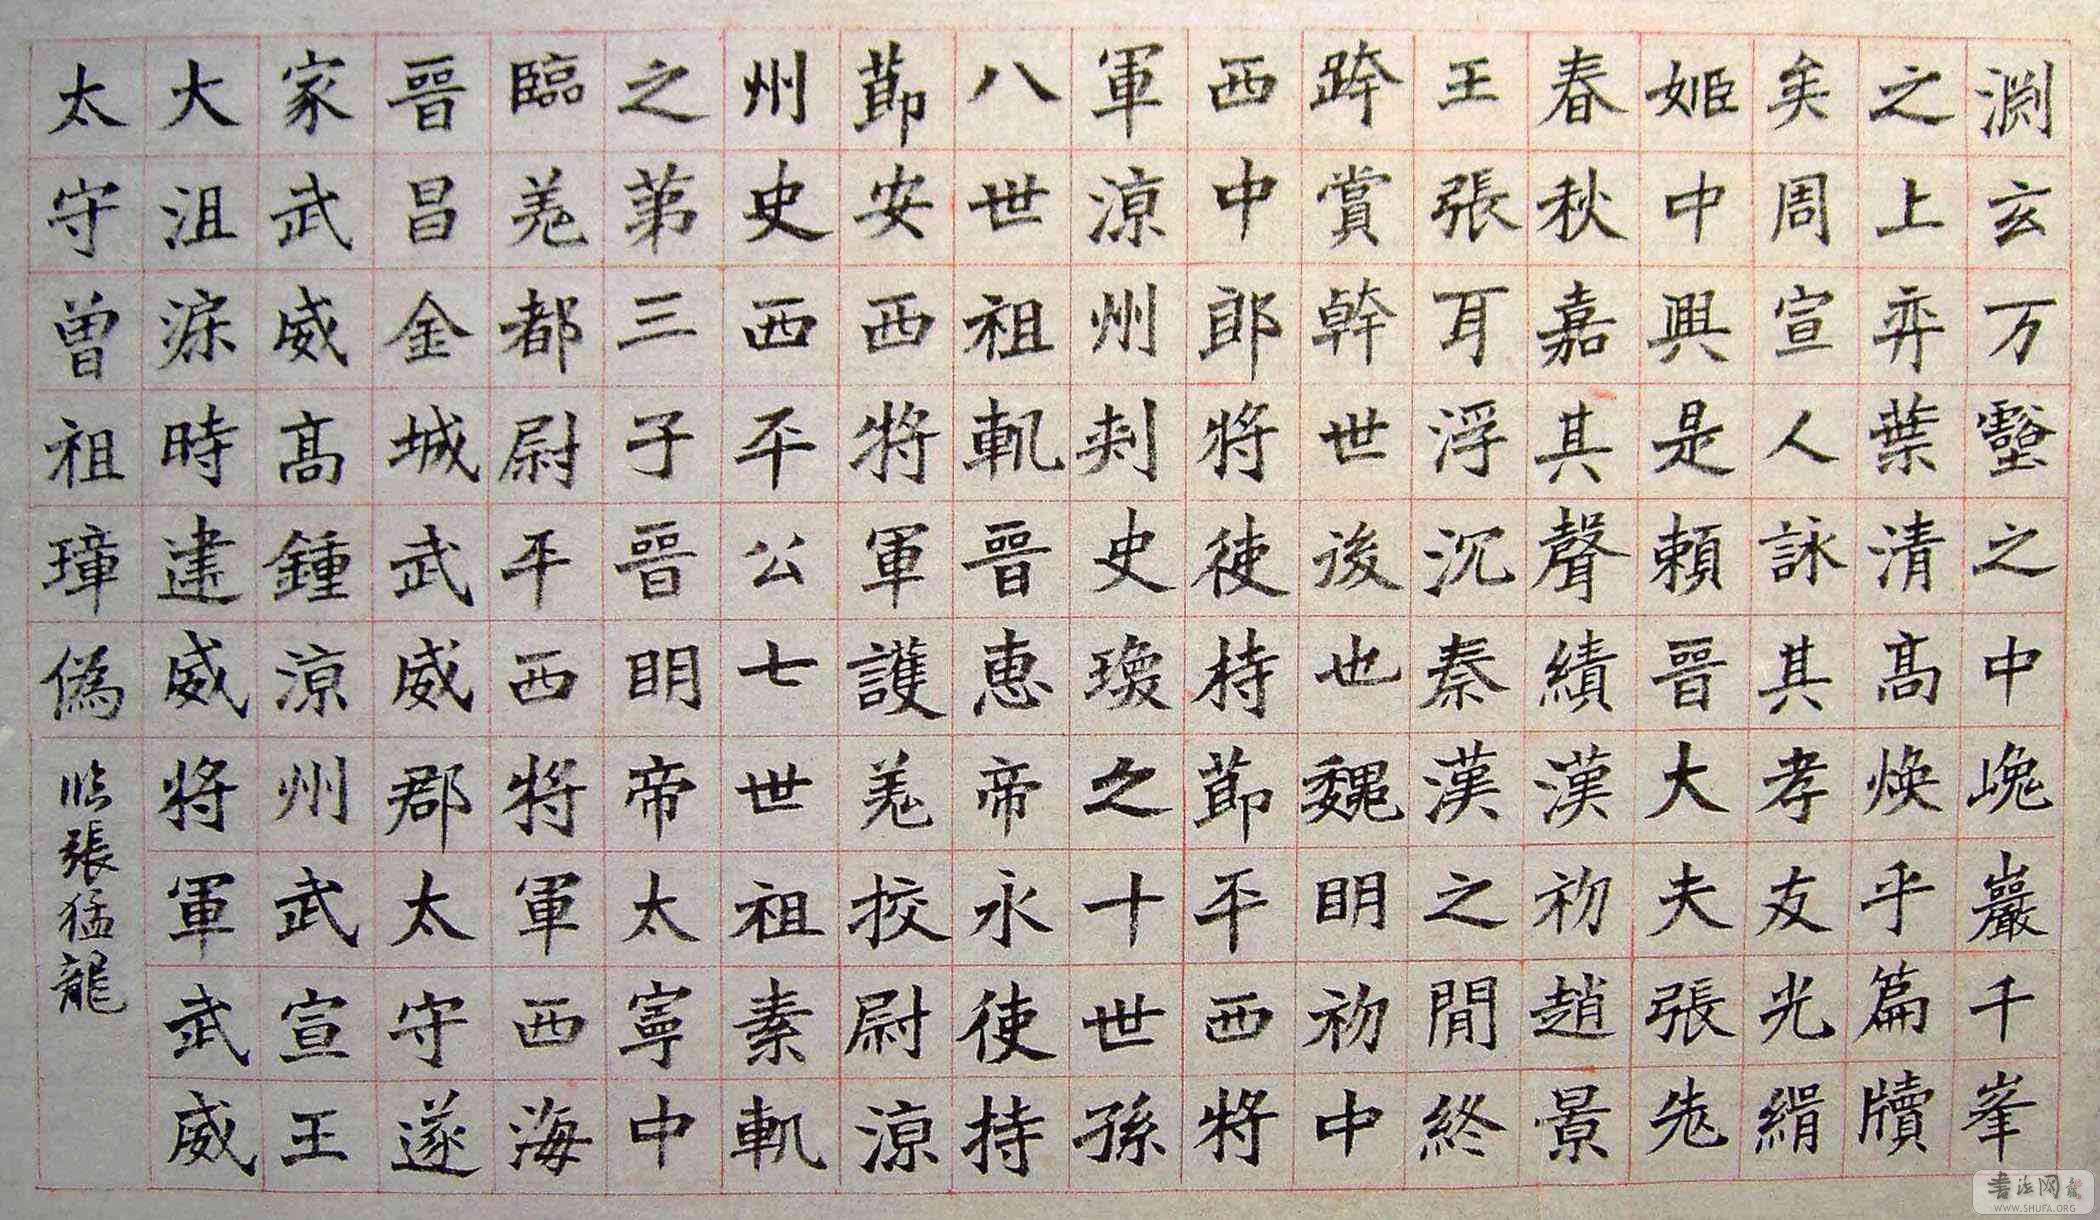 淵玄万壑之中巉巖千峯
之上弈葉清高煥乎篇牘
矣周宣人詠其孝友光緝
姬中興是賴晉大夫張老
春秋嘉其聲績漢初趙景
王張耳浮沉秦漢之間終
跨賞幹世後也魏明初中
西中郎將使持節平西將
軍涼州刾史瓊之十世孫
八世祖軌晉惠帝永使持
節安西將軍護羌挍尉涼
州史西平公七世祖素軌
之第三子晉明帝太寧中
臨羌都尉平西將軍西海
晉昌金城武威郡太守遂
家武威高鍾涼州武宣王
大沮渠時建威將軍武威
太守曾祖璋偽
临張猛龍
書法网
WWW.SHUFA.ORG